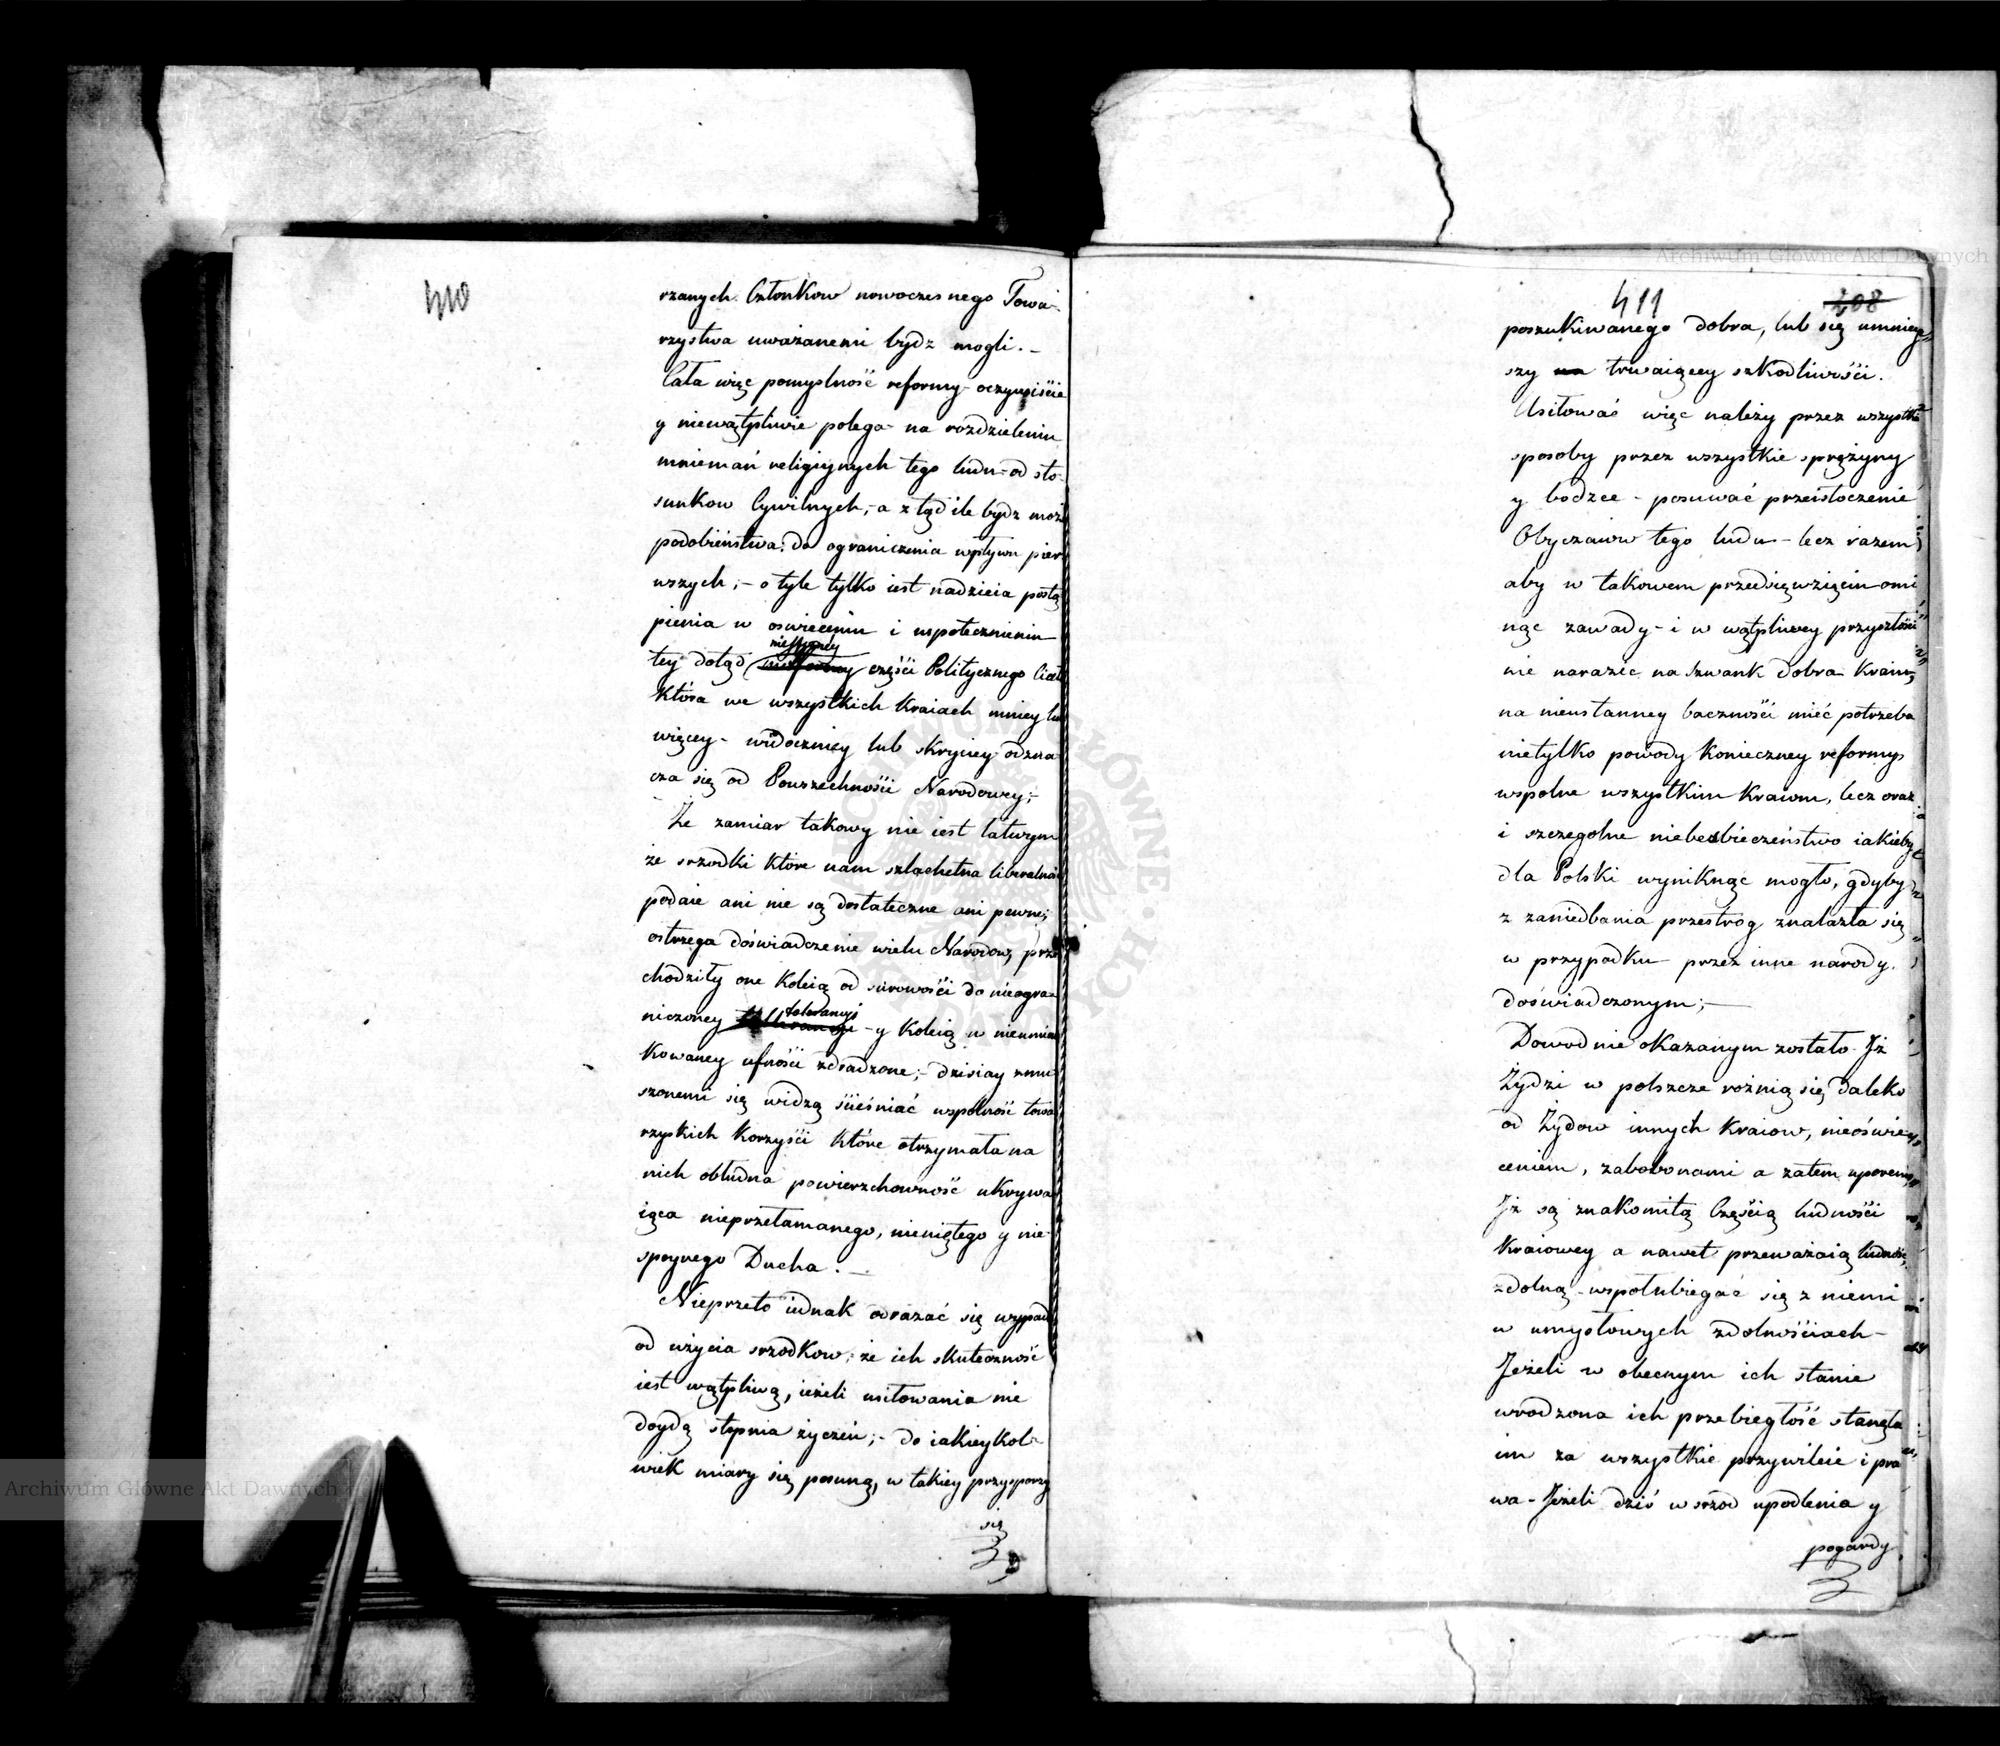 410
rzanych Członkow nowoczesnego Towa-
rzystwa uważanemi bydz mogli. –
Cała więc pomyslność reformy – oczywiście
y niewątpliwie polega – na rozdzieleniu
mniemań religiynych tego ludu – od sto-
sunkow Cywilnych, – a z tąd ile bydz może
podobieństwa: do ograniczenia wpływu pier
wszych; – o tyle tylko iest nadzieia postą
pienia w oswieceniu i uspołecznieniu
tey dotąd niesforney części Politycznego Ciała
która we wszystkich kraiach mniey lub
więcey – widoczniey lub skryciey odzna
cza się od Powszechności Narodowey; –
Że zamiar takowy nie iest łatwym
że srzodki które nam szlachetna liberalność
podaie ani nie są dostateczne ani pewne;
ostrzega doświadczenie wielu Narodow, prze
chodziły one koleią od surowości do nieogra-
niczoney tolerancyi – y koleią w nieumiar
kowaney ufności zdradzone; – dzisiay zmu
szonemi się widzą ścieśniać wspolność towa
rzyskich korzyści które otrzymała na
nich obłudna powierzchowność ukrywa
iąca nieprzełamanego, nieugiętego y nie
spoynego Ducha. –
Nieprzeto iednak odrazać się wypada
od użycia srzodkow; że ich skuteczność
iest wątpliwą, ieżeli usiłowania nie
doydą stopnia życzeń; – do iakieykol-
wiek miary się posuną, w takiey przysporzy
się
411
208
poszukiwanego dobra, lub się umniey
szy trwaiącey szkodliwości.
Usiłować więc należy przez wszystkie
sposoby przez wszystkie sprężyny
y bodzce – posuwać przeistoczenie
Obyczaiow tego ludu – lecz razem
aby w takowem przedsięwzięciu omi
nąc zawady – i w wątpliwey przyszłości
nie narazić na szwank dobra kraiu,
na nieustanney baczności mieć potrzeba
nietylko powody konieczney reformy
wspolne wszystkim kraiom, lecz oraz
i szczegolne niebezbieczeństwo iakieby
dla Polski wyniknąc mogło, gdyby
z zaniedbania przestrog znalazła się
w przypadku – przez inne narody
doświadczonym; –
Dowodnie okazanym zostało Iż
Żydzi w polszcze rożnią się daleko
od Żydow innych kraiow, nieoświe
ceniem, zabobonami a zatem uporem,
Iż są znakomitą Częścią ludności
kraiowey a nawet przeważaią ludność,
zdolną – wspołubiegać się z niemi
w umysłowych zdolnościach –
Jeżeli w obecnym ich stanie
wrodzona ich przebiegłość stanęła
im za wszystkie przywileie i pra
wa – Jeżeli dziś w srzod upodlenia y
pogardy
Archiwum Główne Akt Dawnych
Archiwum Główne Akt Dawnych